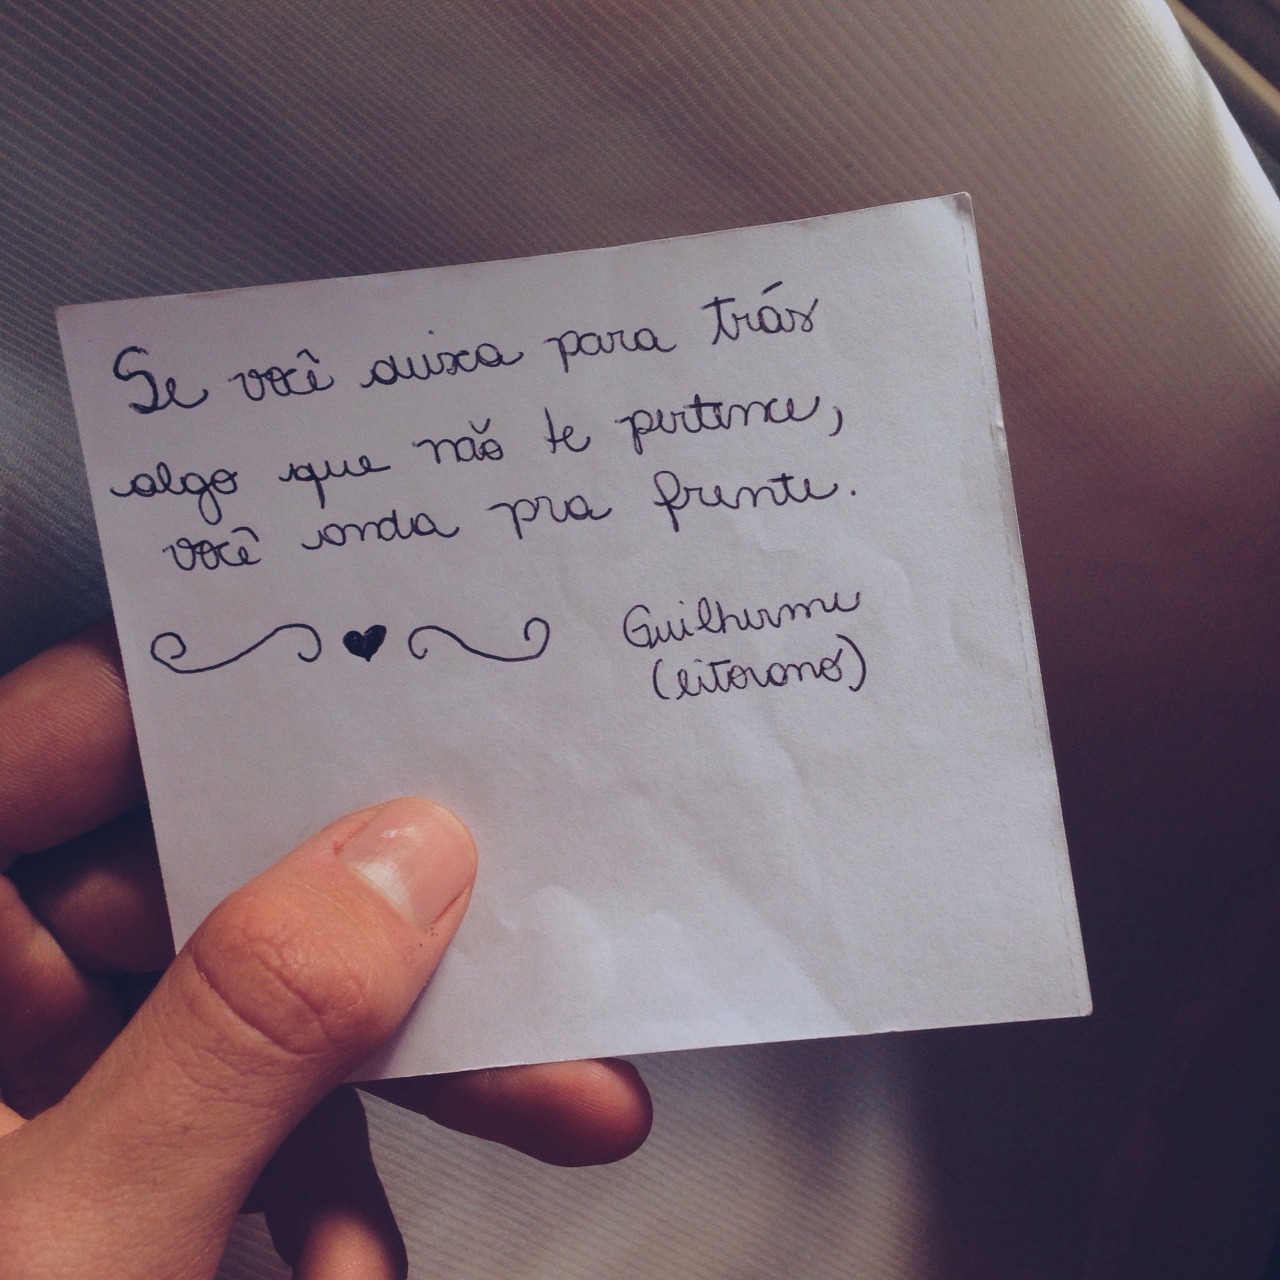 Se você deixa para trás
algo que não te pertence,
você anda pra frente.
Guilherme
(eitorono)